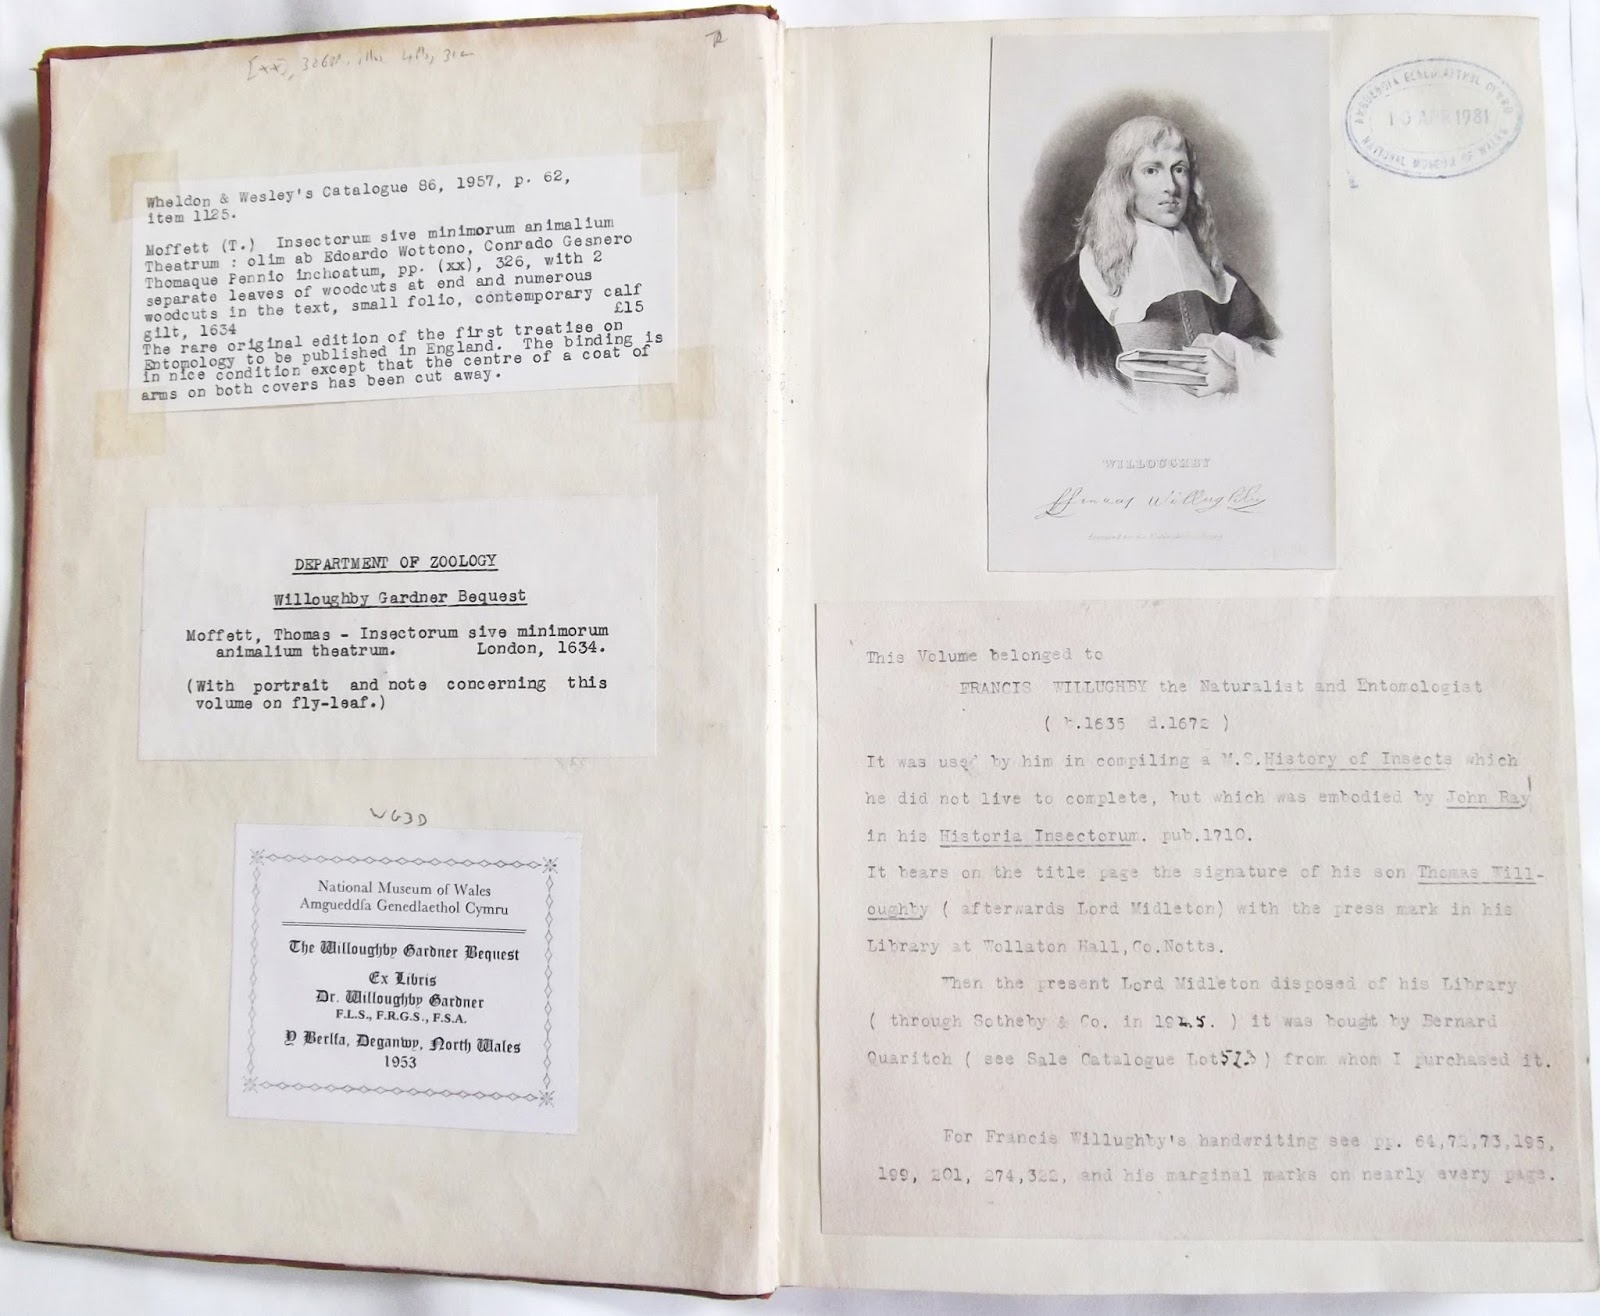 Wheldon & Wesley's Catalogue 86, 1957, p. 62,
item 1125.
Moffett (T.) Insectorum sive minimorum animalium
Theatrum : olim ab Edoardo Wottono, Conrado Gesnero
Thomaque Pennio inchoatum, pp. (xx), 326, with 2
separate leaves of woodcuts at end and numerous
woodcuts in the text, small folio, contemporary calf
gilt, 1634 £15
The rare original edition of the first treatise on
Entomology to be published in England. The binding is
in nice condition except that the centre of a coat of
arms on both covers has been cut away.
DEPARTMENT OF ZOOLOGY
Willoughby Gardner Bequest
Moffett, Thomas - Insectorum sive minimorum
animalium theatrum. London, 1634.
(With portrait and note concerning this
volume on fly-leaf.)
WG3D
National Museum of Wales
Amgueddfa Genedlaethol Cymru
The Willoughby Gardner Bequest
Ex Libris
Dr. Willoughby Gardner
F.L.S., F.R.G.S., F.S.A.
Y Berlfa, Deganwy, North Wales
1953
AMGUEDDFA GENEDLAETHOL CYMRU
APR 1981
NATIONAL MUSEUM OF WALES
WILLOUGHBY
Willughby
This Volume belonged to
FRANCIS WILLUGHBY the Naturalist and Entomologist
( b.1635 d.1672 )
It was used by him in compiling a M.S.History of Insects which
he did not live to complete, but which was embodied by John Ray
in his Historia Insectorum. pub.1710.
It bears on the title page the signature of his son Thomas Will-
oughby ( afterwards Lord Midleton) with the press mark in his
Library at Wollaton Hall,Co.Notts.
When the present Lord Midleton disposed of his Library
( through Sotheby & Co. in 1925. ) it was bought by Bernard
Quaritch ( see Sale Catalogue Lot 573 ) from whom I purchased it.
For Francis Willughby's handwriting see pp. 64,72,73,195,
199, 201, 274,322, and his marginal marks on nearly every page.